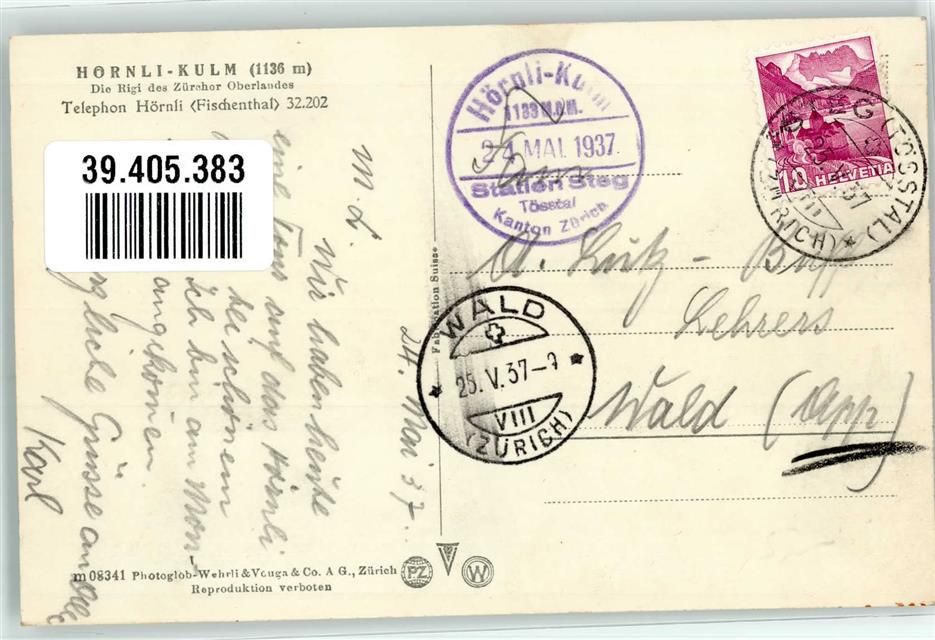 HÖRNLI-KULM (1136 m)
Die Rigi des Zürcher Oberlandes
Telephon Hörnli (Fischenthal) 32.202
39.405.383
Hörnli-Kulm
1133 M.ü.M.
24. MAI. 1937.
Station Steg
Tösstal
Kanton Zürich
STEG (TÖSSTAL)
(ZÜRICH)
10 HELVETIA
Fabrication Suisse
WALD
25.V.37-7
VIII
(ZÜRICH)
A. Lutz-
Lehrers
Wald (App)
24. Mai 37.
M. L.
Wir haben heute
eine Tour auf das Hörnli
der schönen
Ich bin am Mon-
angekommen.
Grüsse an alle
Karl
m 08341 Photoglob-Wehrli & Vouga & Co. A G., Zürich
Reproduktion verboten
PZ
W